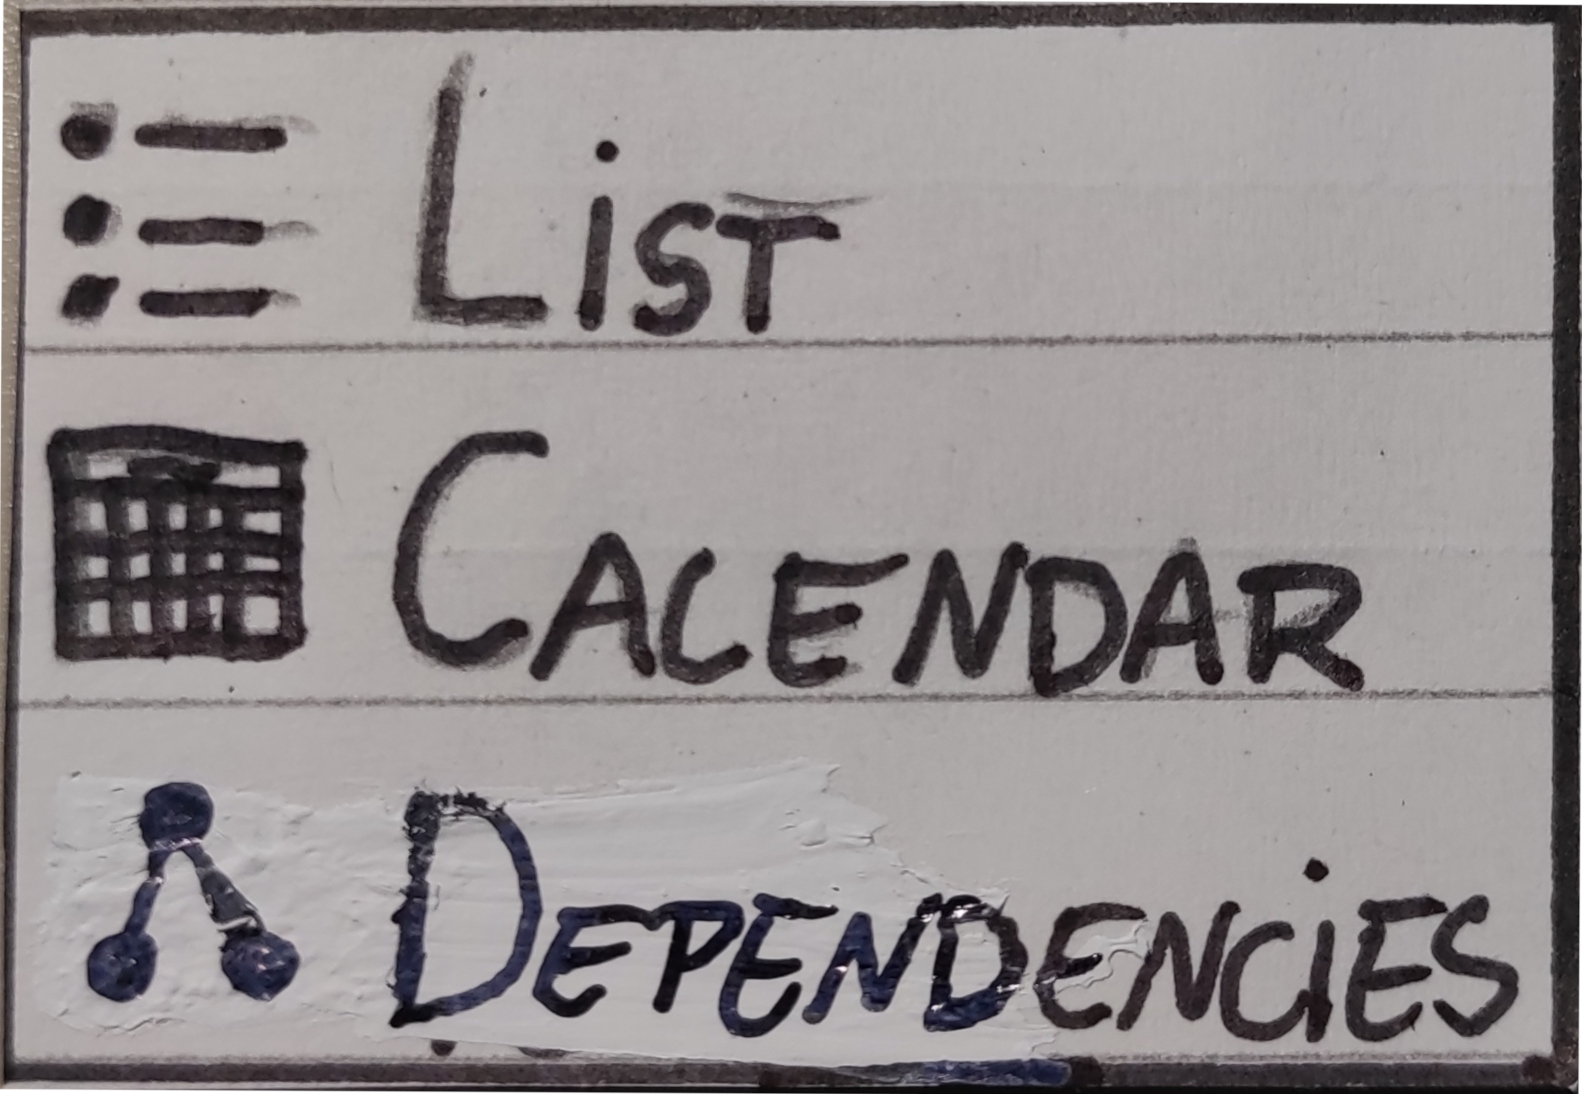 List
Calendar
Dependencies